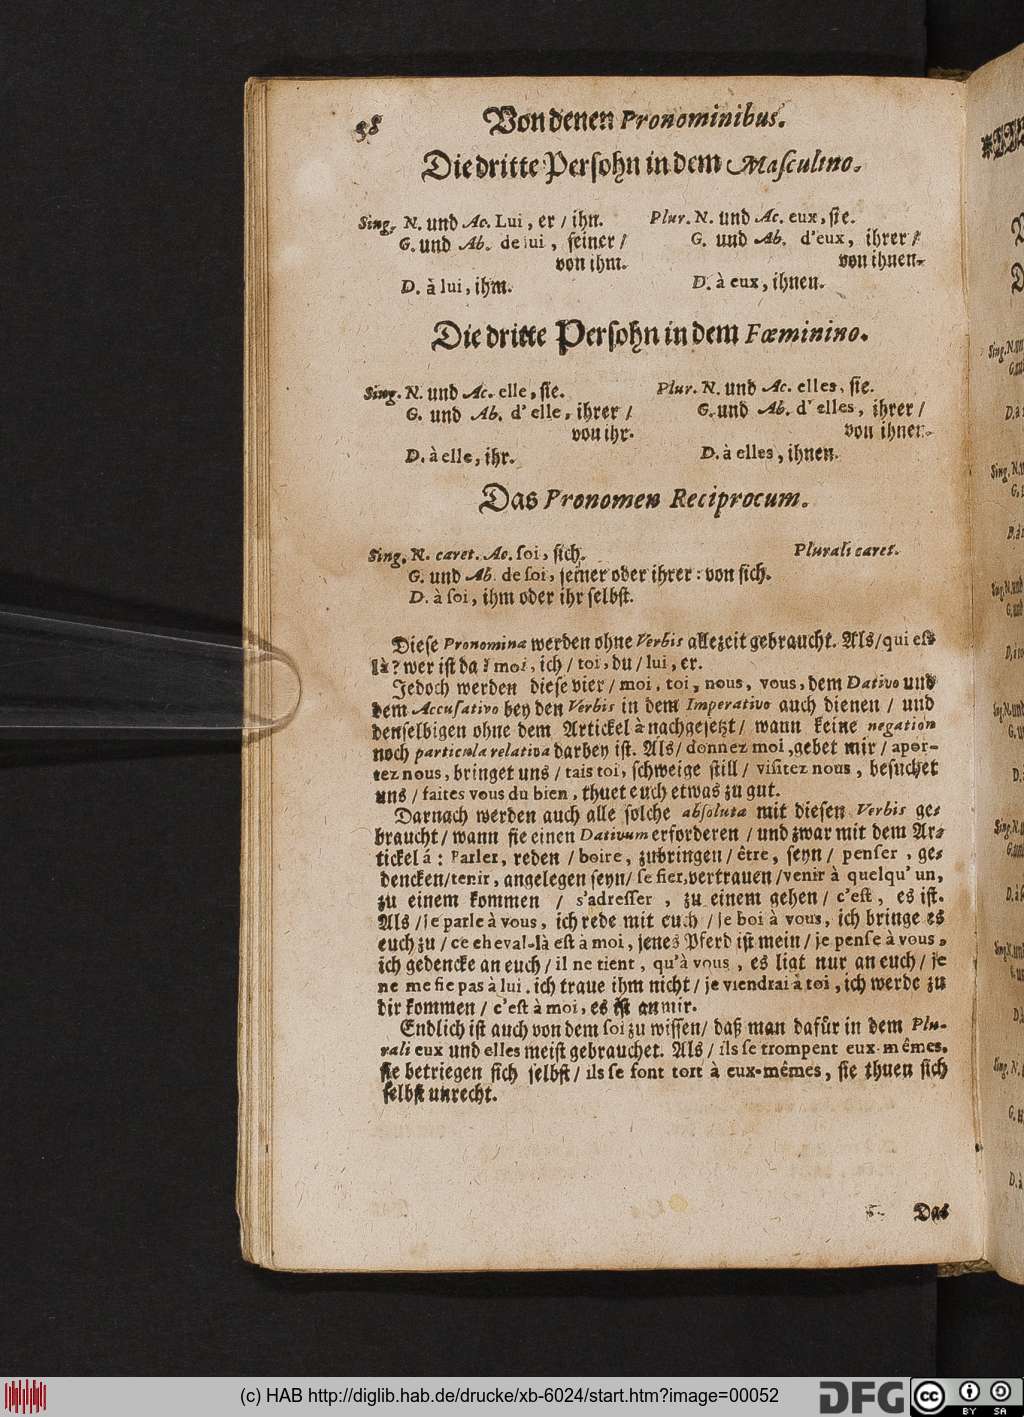 38 Von denen Pronominibus.
Die dritte Persohn in dem Masculino.
Sing. N. und Ac. Lui, er / ihn. Plur. N. und Ac. eux, sie.
G. und Ab. de lui, seiner / G. und Ab. d'eux, ihrer /
von ihm. von ihnen.
D. à lui, ihm. D. à eux, ihnen.
Die dritte Persohn in dem Fœminino.
Sing. N. und Ac. elle, sie. Plur. N. und Ac. elles, sie.
G. und Ab. d'elle, ihrer / G. und Ab. d'elles, ihrer /
von ihr. von ihnen.
D. à elle, ihr. D. à elles, ihnen.
Das Pronomen Reciprocum.
Sing. N. caret. Ac. ſoi, sich. Plurali caret.
G. und Ab. de ſoi, seiner oder ihrer: von sich.
D. à ſoi, ihm oder ihr selbst.
Diese Pronomina werden ohne Verbis allezeit gebraucht. Als / qui est
là? wer ist da? moi, ich / toi, du / lui, er.
Jedoch werden diese vier / moi, toi, nous, vous, dem Dativo und
dem Accusativo bey den Verbis in dem Imperativo auch dienen / und
denselbigen ohne dem Artickel à nachgesetzt / wann keine negation
noch particula relativa darbey ist. Als / donnez moi, gebet mir / apor-
tez nous, bringet uns / tais toi, schweige still / visitez nous, besuchet
uns / faites vous du bien, thuet euch etwas zu gut.
Darnach werden auch alle solche absoluta mit diesen Verbis ge-
braucht / wann sie einen Dativum erforderen / und zwar mit dem Ar-
tickel á: Parler, reden / boire, zubringen / être, seyn / penser, ge-
dencken / tenir, angelegen seyn / se fier, vertrauen / venir à quelqu'un,
zu einem kommen / s'adresser, zu einem gehen / c'est, es ist.
Als / je parle à vous, ich rede mit euch / je boi à vous, ich bringe es
euch zu / ce cheval-là est à moi, jenes Pferd ist mein / je pense à vous,
ich gedencke an euch / il ne tient, qu'à vous, es ligt nur an euch / je
ne me fie pas à lui, ich traue ihm nicht / je viendrai à toi, ich werde zu
dir kommen / c'est à moi, es ist an mir.
Endlich ist auch von dem soi zu wissen / daß man dafür in dem Plu-
rali eux und elles meist gebrauchet. Als / ils se trompent eux-mêmes,
sie betriegen sich selbst / ils se font tort à eux-mêmes, sie thuen sich
selbst unrecht.
Das
(c) HAB http://diglib.hab.de/drucke/xb-6024/start.htm?image=00052
DFG
cc BY SA